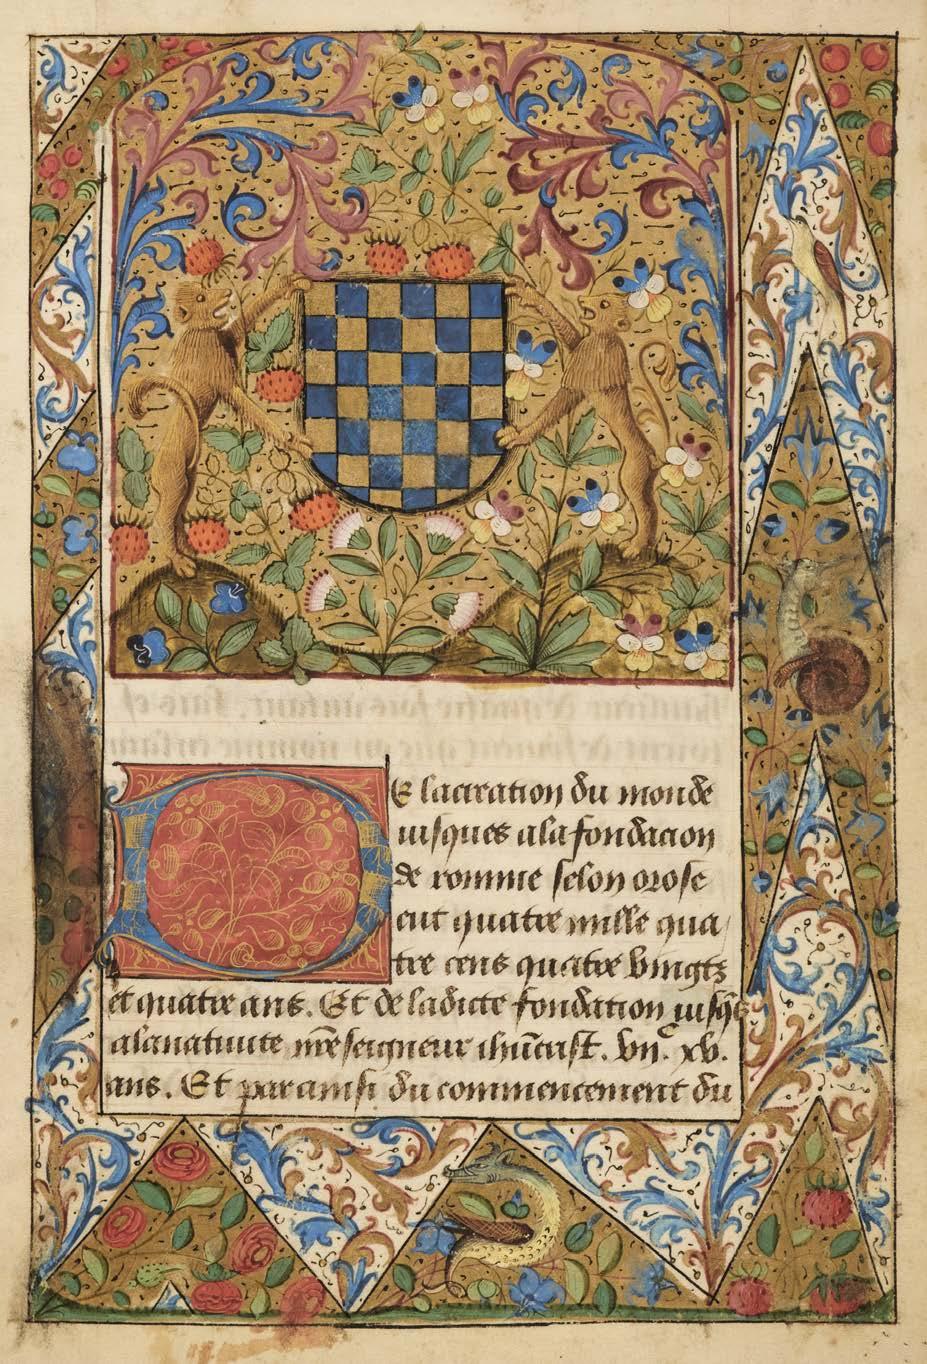 De lacreation du monde
iusques ala fondacion
de romme selon orose
eut quatre mille qua
tre cens quatre vingtz
et quatre ans. Et de ladicte fondation iusqs
alanatiuite nr̃e seigneur ihũcrist. vijc. xv.
ans. Et par ainsi du commencement du